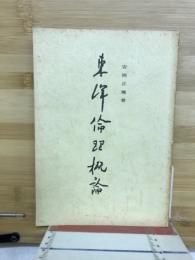 東洋倫理概論
安岡正篤著